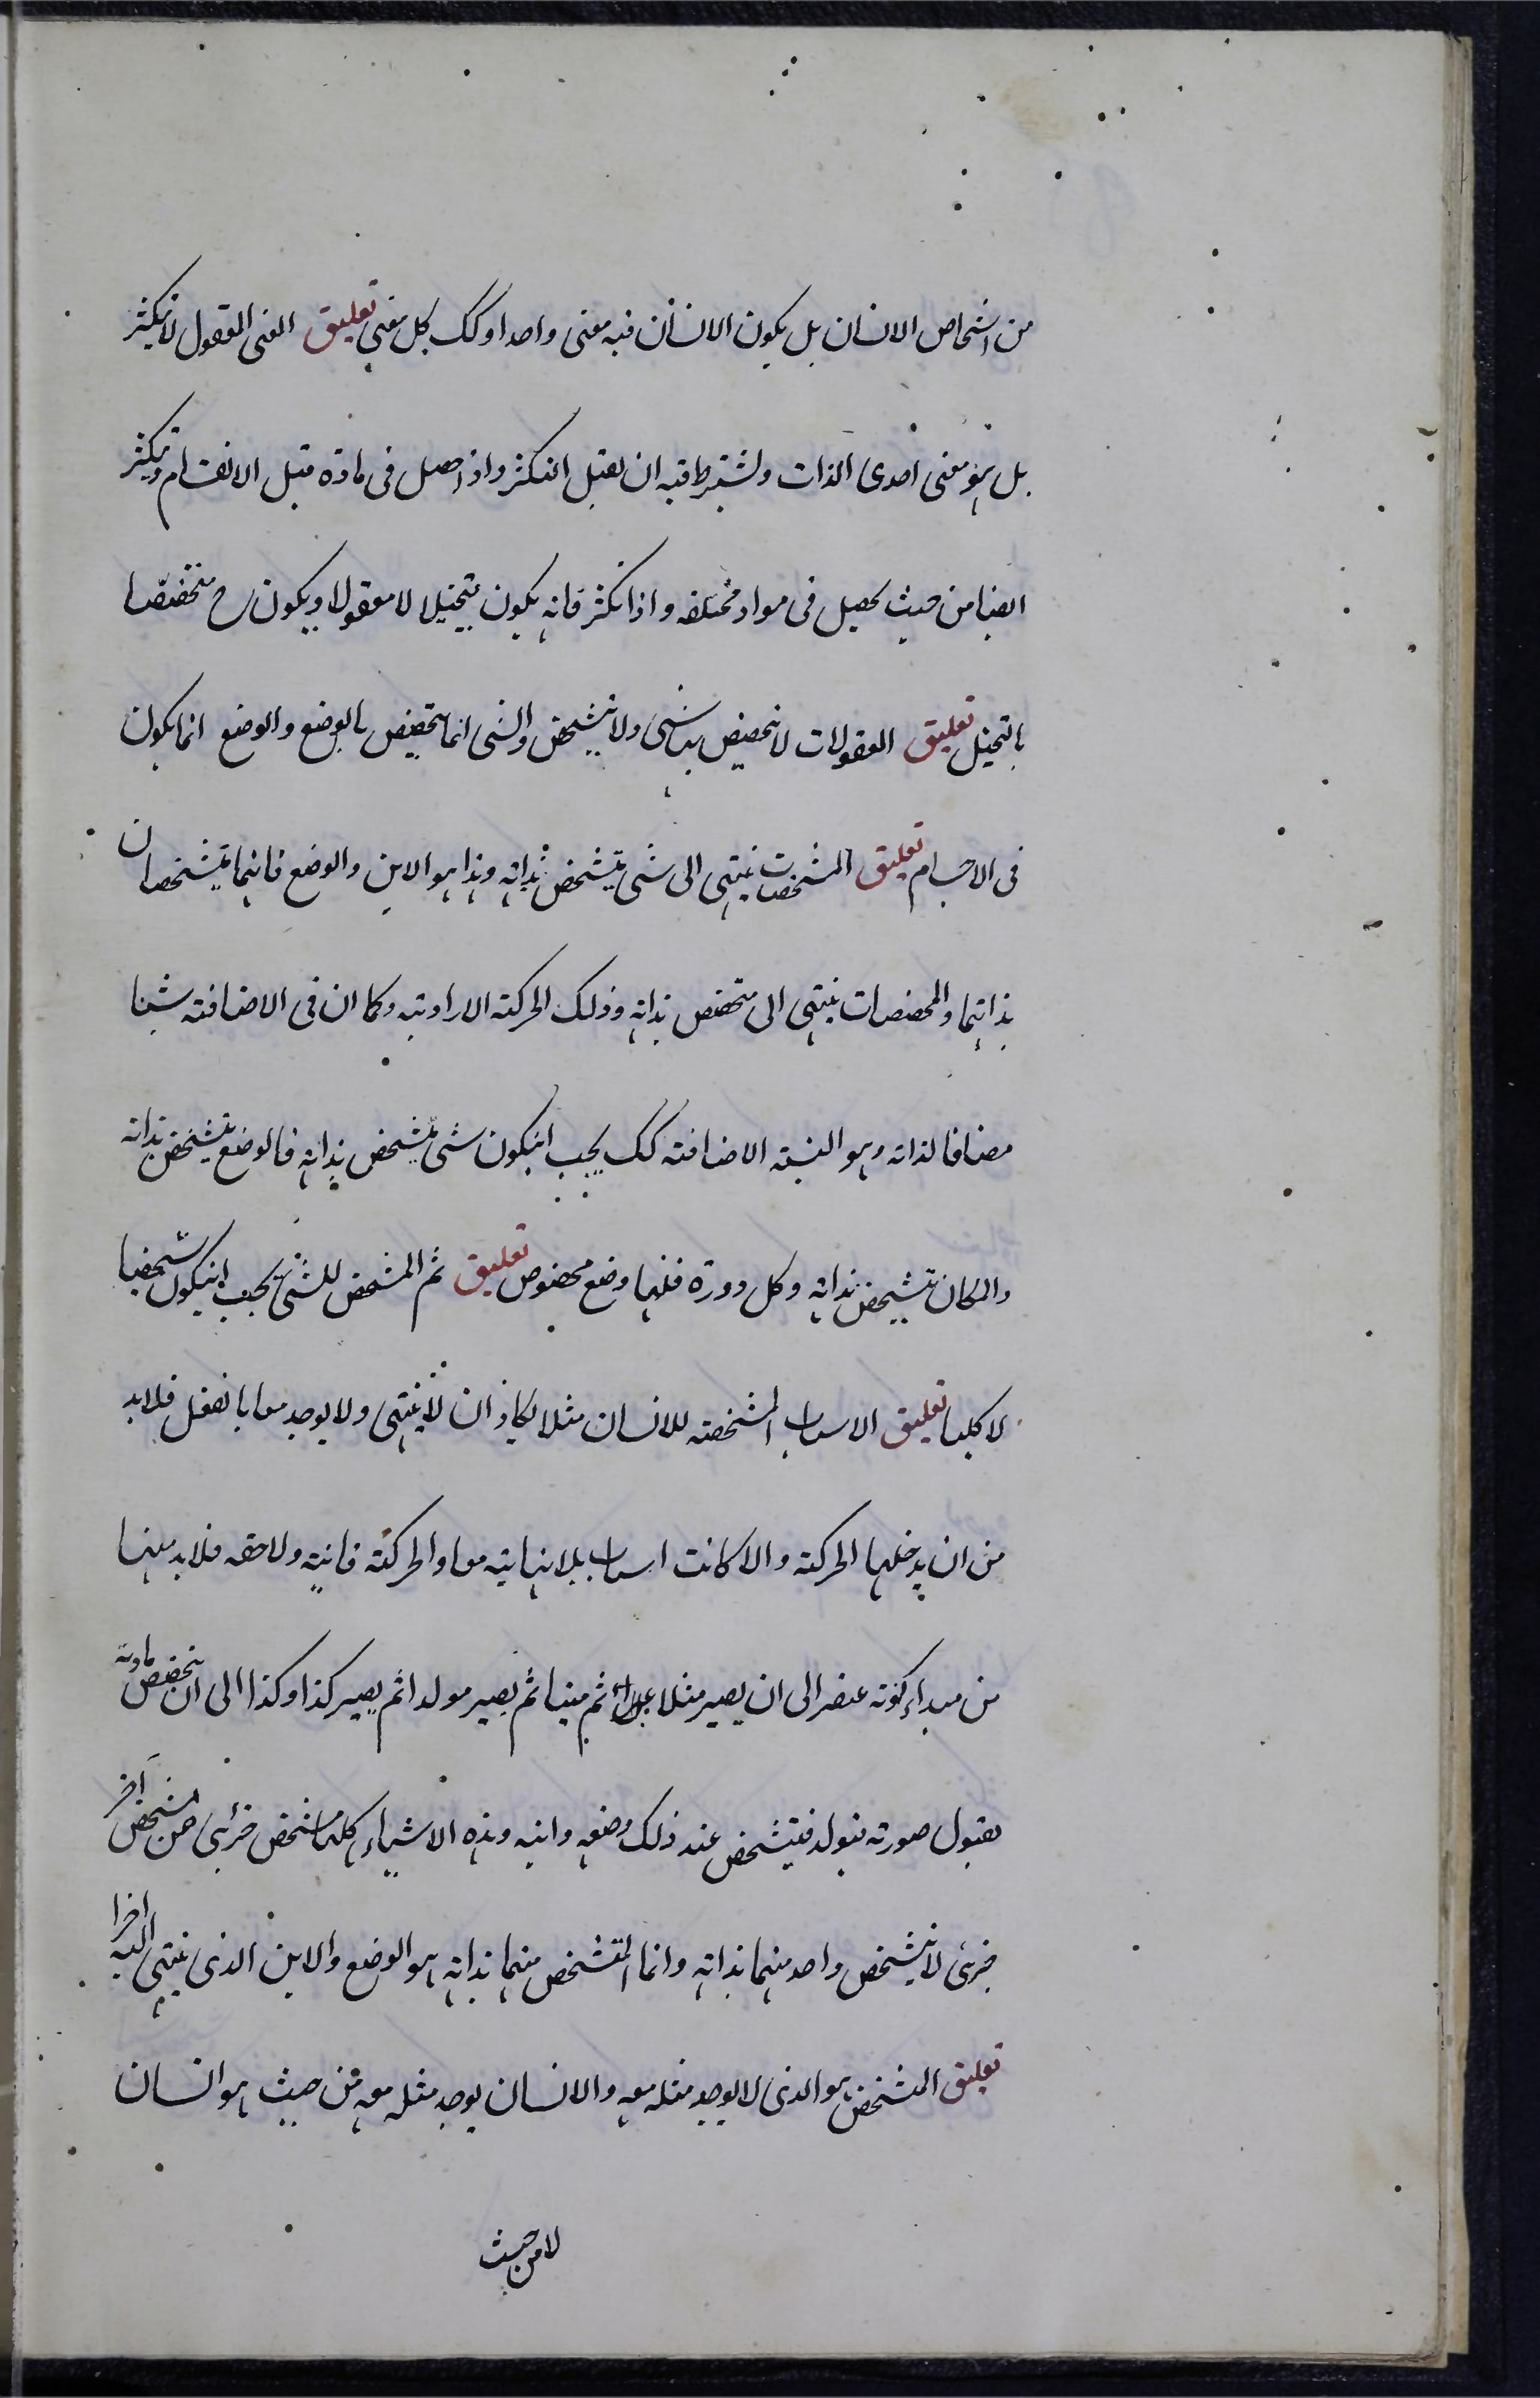 من اشخاص الانسان بل يكون الانسان فيه معنى واحدا وكك كل معنى تعليق المعنى المعقول لا يتكثر
بل هو معنى احدى الذات ولشتراط فيه ان يقبل التكثر واذا حصل فى مادة قبل الانقسام وتكثر
ايضا من حيث يحصل فى مواد مختلفه واذا تكثر فانه يكون متخيلا لا معقولا ويكون ح متخصصا
بالتخيل تعليق المعقولات لا تتخصص بشئ ولا تتشخص والشئ انما يتخصص بالوضع والوضع انما يكون
فى الاجسام تعليق المشخصات ينتهى الى شئ يتشخص بذاته وهذا هو الاين والوضع فانهما يتشخصان
بذاتهما والمخصصات ينتهى الى متخصص بذاته وذلك الحركة الارادية وكما ان فى الاضافته شيئا
مضافا لذاته وهو النسبة الاضافته كك يجب ان يكون شئ يتشخص بذاته فالوضع يتشخص بذاته
والمكان يتشخص بذاته وكل دورة فلها وضع مخصوص تعليق ثم المشخص للشئ يجب ان يكون شخصيا
لا كليا تعليق الاسباب المشخصة للانسان مثلا يكاد ان لا ينتهى ولا يوجد معا بالفعل فلابد
من ان يدخلها الحركة والا كانت اسباب بلا نهاية معا والحركة فانية ولاحقه فلابد منها
من مبداء كونه عنصرا الى ان يصير مثلا غذاء ثم منيا ثم يصير مولدا ثم يصير كذا وكذا الى ان يتخصص مادته
بقبول صورته فيولد فيتشخص عند ذلك وضعه واينه وهذه الاشياء كلها شخص جزئى عن شخص آخر
جزئى لا يتشخص واحد منهما بذاته وانما المتشخص منهما بذاته هو الوضع والاين الذى ينتهى اليه اخرا
تعليق المشخص هو الذى لا يوجد مثله معه والانسان يوجد مثله معه من حيث هو انسان
لا من حيث